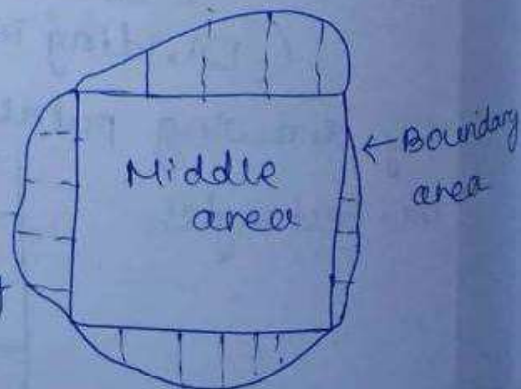 Middle
area
Boundary
area